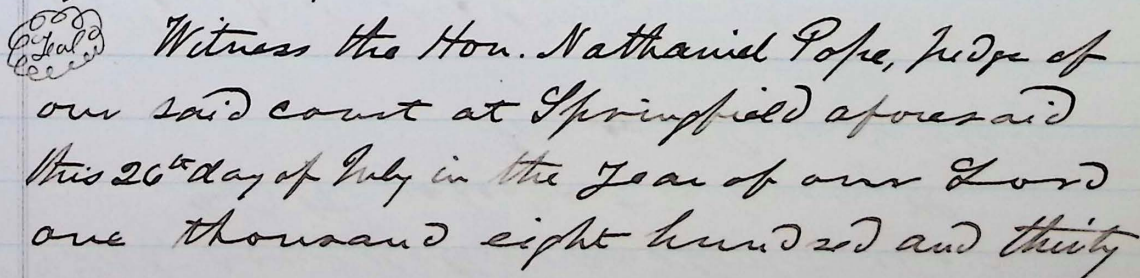 Seal Witness the Hon. Nathaniel Pope, Judge of
our said court at Springfield aforesaid
this 26th day of July in the Year of our Lord
one thousand eight hundred and thirty